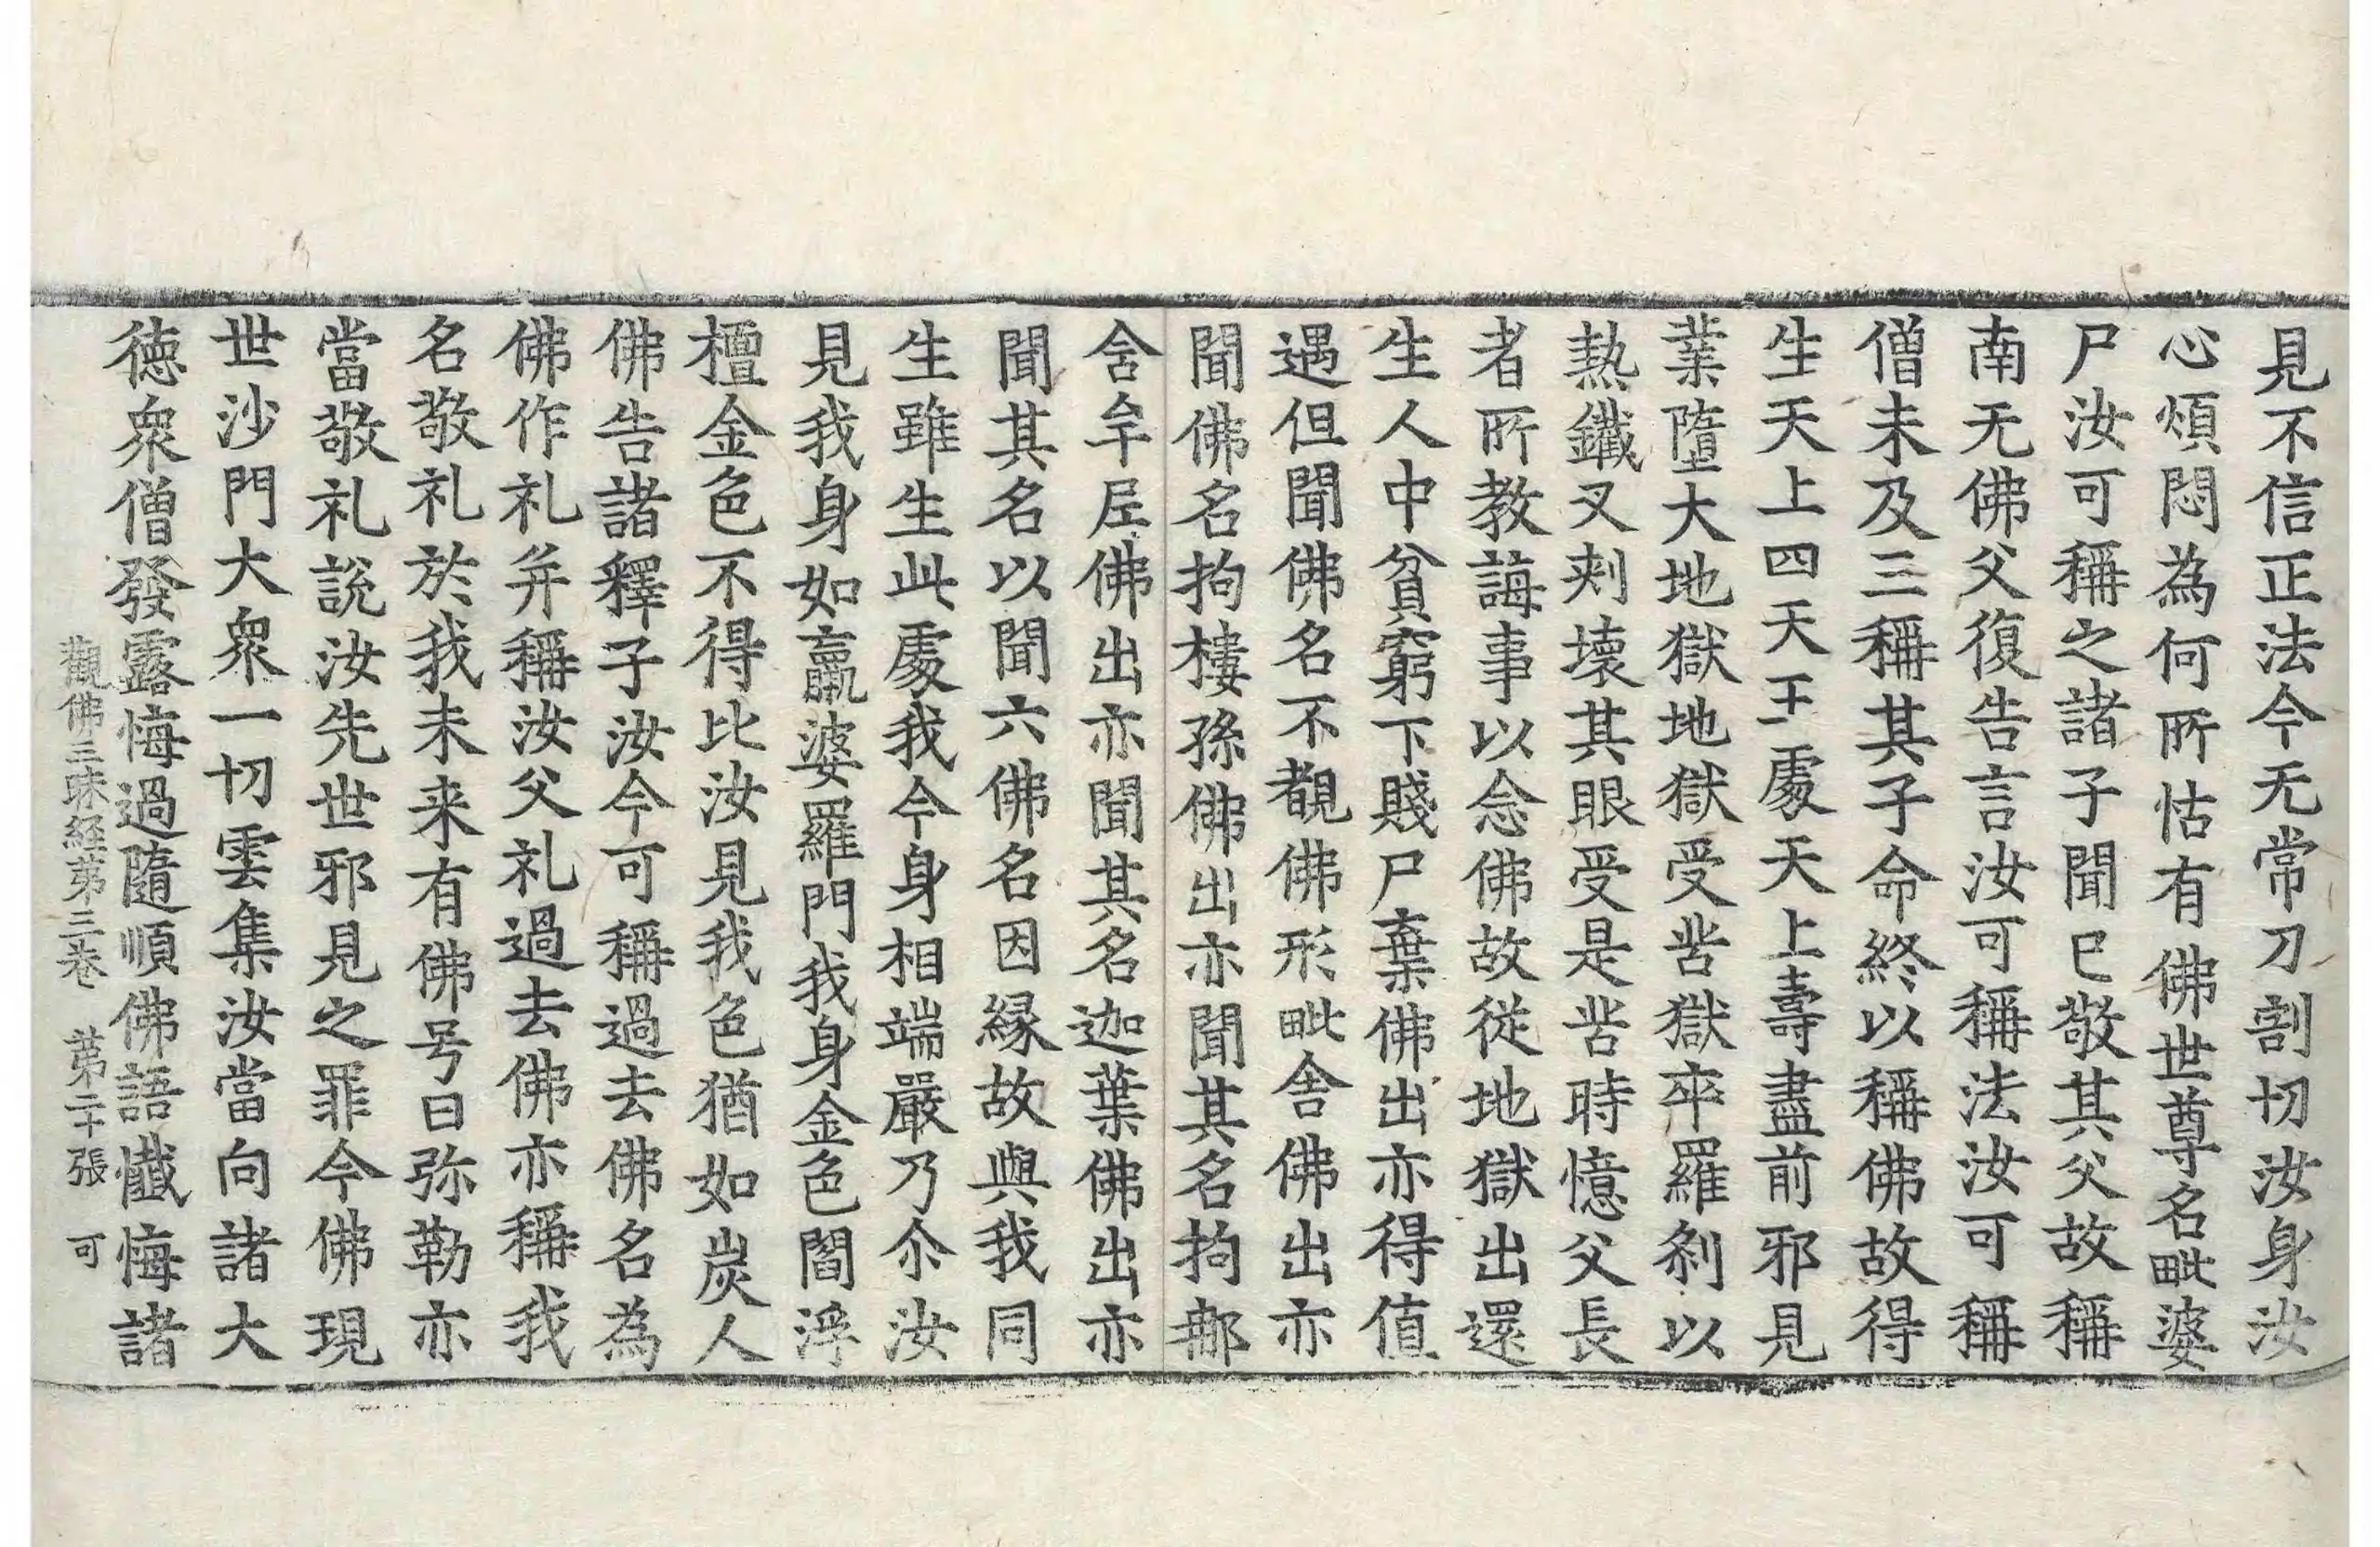 見不信正法今无常刀割切汝身汝
心煩悶為何所怙有佛世尊名毗婆
尸汝可稱之諸子聞已敬其父故稱
南无佛父復告言汝可稱法汝可稱
僧未及三稱其子命終以稱佛故得
生天上四天王處天上壽盡前邪見
業墮大地獄地獄受苦獄卒羅剎以
熱鐵叉刾壞其眼受是苦時憶父長
者所教誨事以念佛故從地獄出還
生人中貧窮下賤尸棄佛出亦得值
遇但聞佛名不覩佛形毗舍佛出亦
聞佛名拘樓孫佛出亦聞其名拘那
含牟尼佛出亦聞其名迦葉佛出亦
聞其名以聞六佛名因緣故與我同
生雖生此處我今身相端嚴乃尒汝
見我身如羸婆羅門我身金色閻浮
檀金色不得比汝見我色猶如炭人
佛告諸釋子汝今可稱過去佛名為
佛作礼并稱汝父礼過去佛亦稱我
名敬礼於我未来有佛号曰弥勒亦
當敬礼說汝先世邪見之罪今佛現
世沙門大衆一切雲集汝當向諸大
徳衆僧發露悔過隨順佛語懺悔諸
觀佛三昧経苐三卷 苐二十張 可